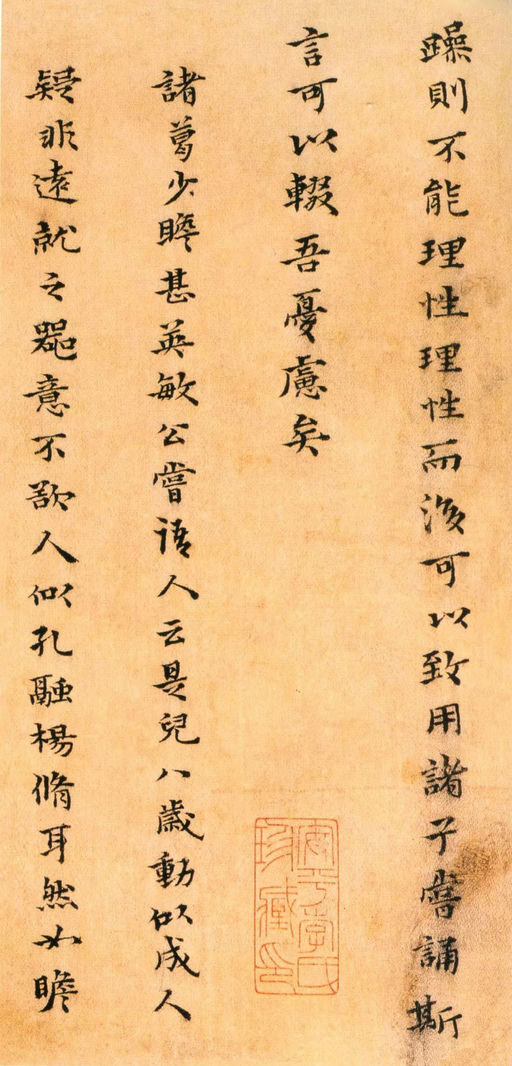 躁則不能理性理性而後可以致用諸子誦斯
言可以輟吾憂慮矣
諸葛少瞻甚英敏公嘗語人云是兒八歲動似成人
疑非遠就之器意不欲人似孔融楊脩耳然如瞻